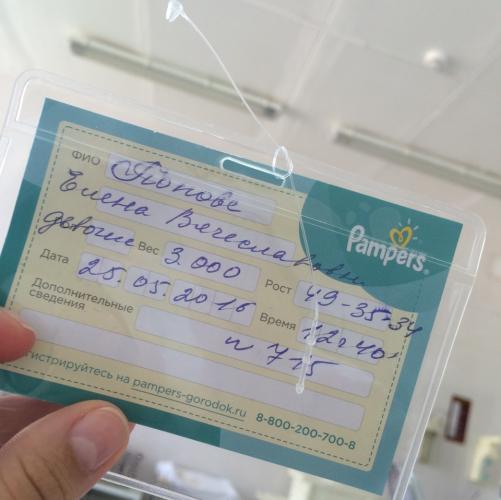 ФИО Попова
Елена Вячеславовна
Pampers
девочка Вес 3.000 Рост 49-35-34
Дата 25.05.2016 Время 12ч 40'
Дополнительные сведения
№ 775
гистрируйтесь на pampers-gorodok.ru 8-800-200-700-8